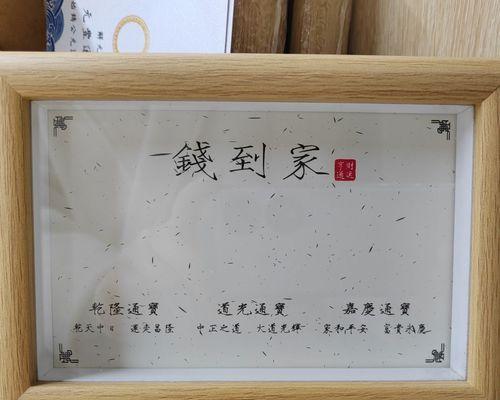 錢到家
财运
亨通
乾隆通寶 道光通寶 嘉慶通寶
乾天中日 運奕昌隆 中正之道 大道光輝 家和平安 富貴永慶